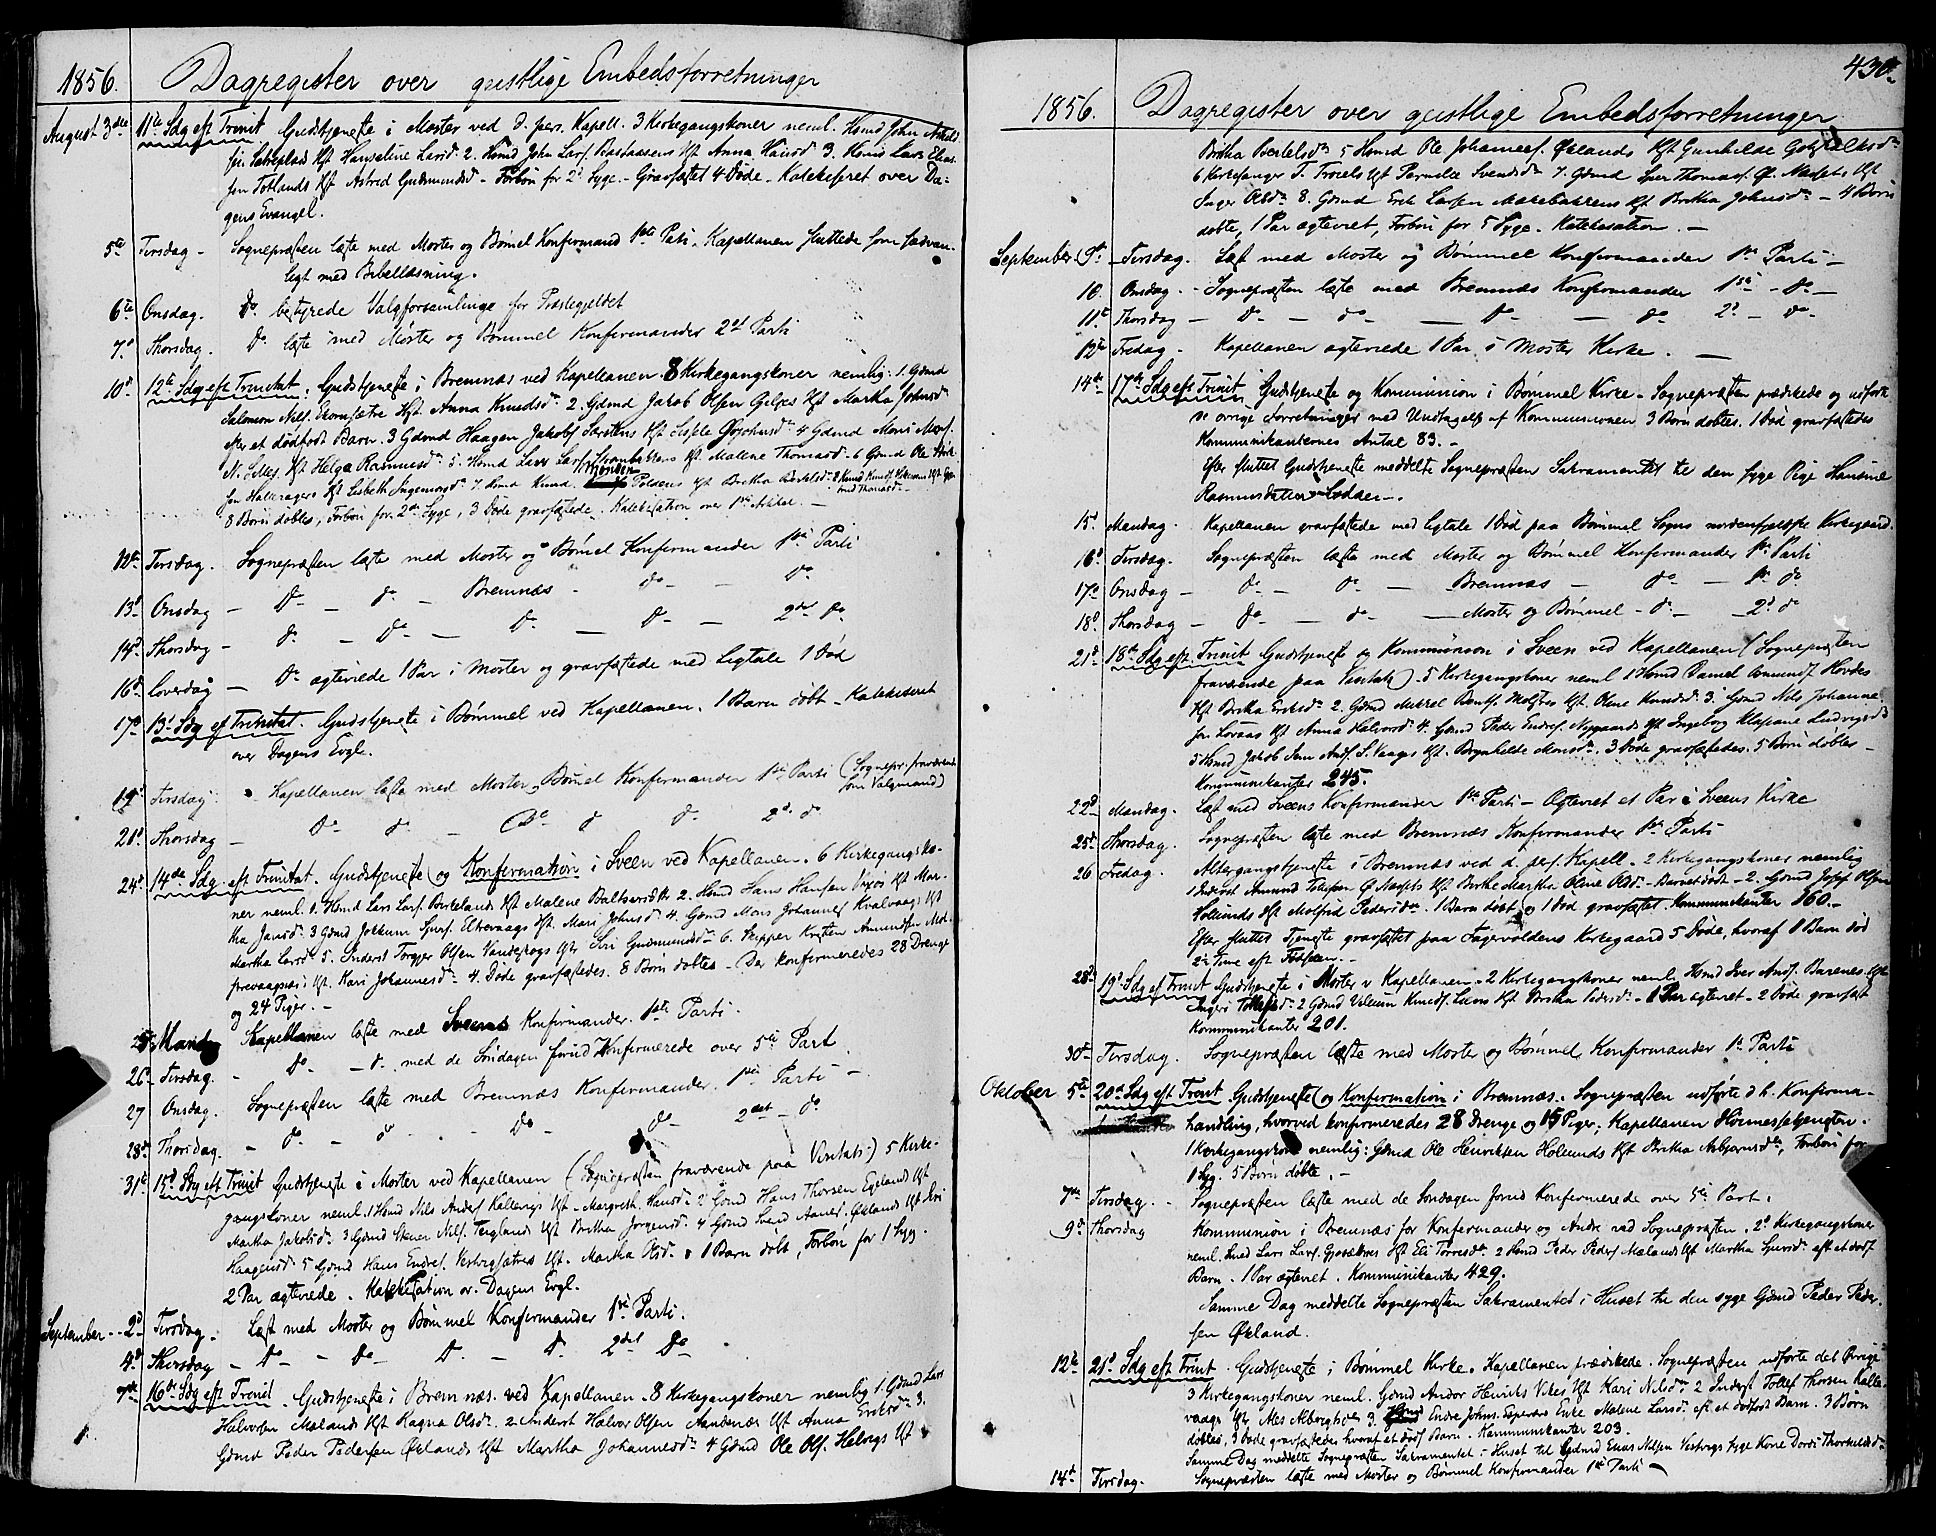 1856. Dagregister over geistlige Embedsforretninger
August 3die 11te Sdg eft Trinit Gudstjeneste i Moster ved d. pers. Kapell. 3 Kirkegangskoner neml. Hsmd John
Kft Hanseline Larsd. 2. Hsmd John Lars. Kft Anna Hansd 3. Hsmd Lars Elias-
sen Totlands Kft Astrid Gudmundsd - Forbøn for 2 Syge. - Gravfæstet 4 Døde. Katekiseret over Da-
gens Evangel.
5te Tirsdag - Sognepræsten læste med Moster og Bømel Konfirmand 1ste Parti. Kapellanen sluttede som sædvan-
ligt med Bibellæsning.
6te Onsdag. Do bestyrede Valgforsamlinge for Præstegjeldet
7d Thorsdag. Do læste med Moster og Bømmel Konfirmander 2d Parti
10d 12te Sdg eft Trinitat. Gudstjeneste i Bremnæs ved Kapellanen. 8 Kirkegangskoner nemlig: 1. Gdmd
Salomon Nils. Kft Anna Knudsd. 2. Gdmd Jakob Olsen Kft Martha Johnsd
efter et dødfødt Barn. 3 Gdmd Haagen Jakobs. Kft 4 Gdmd Mons Mons.
N. Kft Helga Rasmusd. 5. Hsmd Lars Lars. Kft. Malene Thomasd. 6 Gmd Ole
Kft Lisbeth Ingemorsd. 7. Hsmd Knud Kft Brithe Bertelsd. 8
8 Børn døbtes, Forbøn for 2de Syge, 3 Døde gravfæstede. Katekisation over 1ste Artikel. -
12te Tirsdag. Sognepræsten læste med Moster og Bømel Konfirmander 1ste Parti
13d Onsdag - Do - do - Bremnæs - do - - Do
14d Thorsdag - do - Do - Do - Do - 2det Do
16d Løverdag - Do ægteviede 1 Par i Moster og gravfæstede med Ligtale 1 Død
17d 13d Sdg eft Trinitat. Gudstjeneste i Bømmel ved Kapellanen. 1 Barn døbt - Katekiseret
over Dagens Evgl.
19d Tirsdag. Kapellanen læste med Moster, Bømel Konfirmander 1ste Parti (Sognepr. fraværende
som Valgmand)
21d Thorsdag - Do do - Do d do 2d do
24d 14de Sdg eft Trinitat. Gudstjeneste (og Konfirmation i Sveen ved Kapellanen. 6 Kirkegangsko-
ner neml. 1. Hsmd Lars Lars. Birkelands Kft Malene Baltsersdtr 2. Hsmd Hans Hansen Kft Mar-
tha Jansd. 3 Gdmd Jokkum Sjurs. Kft. Mari Johnsd. 4. Gdmd Mons Johannes. Kvalvaags Kft
Martha Larsd. 5. Inderst Torger Olsen Kft Siri Gudmundsd. 6. Skipper Kristen Amundsen
Kft. Kari Johannesd. 4. Døde gravfæstedes. 8 Børn døbtes - Der konfirmeredes 28 Drenge
og 24 Piger. -
25 Mand Kapellanen læste med Sveens Konfirmander. 1ste Parti.
26. Tirsdag. - Do - d. med de Søndagen forud Konfirmerede over 5te Part
27 Onsdag. Sognepræsten læste med Bremnæs Konfirmander. 1ste Parti -
28de Thorsdag. - Do - d - - Do - do 2det - do
31te 15d Sdg eft Trinit Gudstjeneste i Moster ved Kapellanen (Sognepræsten fraværende paa Visitats) 5 Kirke-
gangskoner neml. 1 Hsmd Nils Anders. Kft. Margreth Hansd. 2 Gdmd Hans Thorsen Egeland Kft
Martha Jakobsd. 3 Gdmd Steiner Nils. Teiglands Kft Brithe Jørgensd. 4 Gdmd Svend Aanes. Økland Kft
Haagensd. 5 Gdmd Hans Endres. Kft. Martha Olsd. 1 Barn døbt, Forbøn for 1 Syg.
2 Par ægteviede. Katekisation ov. Dagens Evgl.
September - 2d Tirsdag. Læst med Moster og Bømmel Konfirmander 1ste Parti.
4d Thorsdag - Do - Do - D. - D. 2det Do
7de 16de Sdg eft Trinit. Gudstjeneste i Bremnæs. ved Kapellanen. 8 Kirkegangskoner nemlig 1. Gdmd Lars
Halvorsen Mælands Kft Ragna Olsd. 2 Inderst Halvor Olsen Kft Anna Eriksd. 3.
Gdmd Peder Pedersen Øklands Kft Martha Johannesd. 4 Gdmd Ole Ols. Kft
430
1856. Dagregister over geistlige Embedsforretninger
Britha Bertelsd. 5 Hsmd Ole Johannes. Øklands Kft Gunhilde
6 Kirkesanger T. Troels Kft Pernille Svendsd. 7. Gdmd Sjur Thomas. Ø. Kft
Inger Olsd. 8. Gdmd Erik Larsen Kft Britha Johnsd. - 4 Børn
døbte, 1 Par ægteviet, Forbøn for 5 Syge. Katekisation. -
September. 9d. Tirsdag. Læst med Moster og Bømmel Konfirmander 1ste Parti -
10. Onsdag. - Sognepræsten læste med Bremnæs Konfirmander 1ste - do -
11te Thorsdag - Do - do - Do - do 2d - do
12te Fredag - Kapellanen ægteviede 1 Par i Moster Kirke. -
14de 17de Sdg eft Trinit Gudstjeneste og Kommunion i Bømmel Kirke - Sognepræsten prædikede og udførte
de øvrige Forretninger med Undtagelse af Kommunionen 3 Børn døbtes. 1 Død gravfæstedes
Kommunikanternes Antal 83. -
Efter sluttet Gudstjeneste meddelte Sognepræsten Sakramentet til den syge Pige Hansine
Rasmusdatter -.
15d Mandag. Kapellanen gravfæstede med Ligtale 1 Død paa Bømmel Sogns nordenfjelske Kirkegaard.
16d Tirsdag. Sognepræsten læste med Moster og Bømmel Konfirmander 1ste Parti
17d Onsdag - do - do - Bremnæs - do - 1ste do
18d Thorsdag - do - do - Moster og Bømmel - do - 2d do
21d 18de Sdg eft. Trinit Gudstjeneste og Kommunion i Sveen ved Kapellanen (Sognepræsten
fraværende paa Visitats). 5 Kirkegangskoner neml 1 Hsmd Daniel
Kft Britha Eriksd. 2. Gdmd Mikkel Kft. Oline Knudsd. 3. Gdmd Nils Johanne-
sen Kft Anna Halvorsd. 4. Gdmd Peder Endres. Nygaards Kft Ingeborg Ludvigsd
5 Hsmd Jakob Kft. Brynhilde Monsd. 3 Døde gravfæstedes. 5 Børn døbtes -
Kommunikanter 245.
22d Mandag. Læst med Sveens Konfirmander 1ste Parti - Ægteviet et Par i Sveens Kirke
25de Thorsdag. Sognepræsten læste med Bremnæs Konfirmander 1ste Parti
26 Fredag. Altergangstjeneste i Bremnæs ved d. pers. Kapell. - 2 Kirkegangskoner nemlig
1 Inderst Amund Kft Birthe Martha Oline Olsd. - Barnet dødt - 2. Gdmd Olsen
Kft Molfrid Pedersd. 1 Barn døbt og 1 Død gravfæstet. Kommunikanter 160. -
Efter sluttet Tjeneste gravfæstet paa Kirkegaard 5 Døde, hvoraf 1 Barn død
2 Time eft Fødselen. -
28d 19d Sdg eft Trinit Gudstjeneste i Moster v Kapellanen - 2 Kirkegangskoner neml. Hsmd Iver Kft
2 Gdmd Villum Knuds. Kft Britha Pedersd. - 1 Par ægteviet - 2 Døde gravfæst
Kommunikanter 201.
30te Tirsdag. Sognepræsten læste med Moster og Bømmel Konfirmander 1ste Parti
Oktober 5te 20de Sdg eft Trinit Gudstjeneste (og Konfirmation i Bremnæs. Sognepræsten udførte d h. Konfirma-
handling, hvorved konfirmeredes 28 Drenge og 15 Piger; Kapellanen Høimessetjenesten.
1 Kirkegangskone nemlig: Gdmd Ole Henriksen Kft Britha Asbjørnsd., Forbøn for
1 Syg. 5 Børn døbte. -
7de Tirsdag. - Sognepræsten læste med de Søndagen forud Konfirmerede over 5te Part.
9d Thorsdag Kommunion i Bremnæs for Konfirmander og Andre ved Sognepræsten. 2 Kirkegangskoner
neml. Lars Lars. Kft Eli Torresd. 2 Hsmd Peder Peders. Mælands Kft Martha Sjursd. eft et dødf
Barn. 1 Par ægteviet. Kommunikanter 429.
Samme Dag meddelte Sognepræsten Sakramentet i Huset til den syge Gdmd Peder Peder-
sen Økland.
12te 21d Sdg eft Trinit. Gudstjeneste i Bømmel Kirke. Kapellanen prædikede. Sognepræsten udførte det Øvrige
3 Kirkegangskoner neml. Gdmd Andor Henriks Kft Kari Nilsd. 2 Inderst Tollef Thorsen
3. Endre Johns. Malene Larsd. eft et dødfødt Barn. 3 Børn
døbtes, 3 Døde gravfæstedes hvoraf et dødf Barn. Kommunikanter 203.
Samme Dag meddelte Sognepræsten Sakramentet i Huset til Gdmd Elias Nilsen syge Kone Dordi Thorkildsd.
14de Tirsdag. Sognepræsten læste med Moster og Bømmel Konfirmander 1ste Parti -